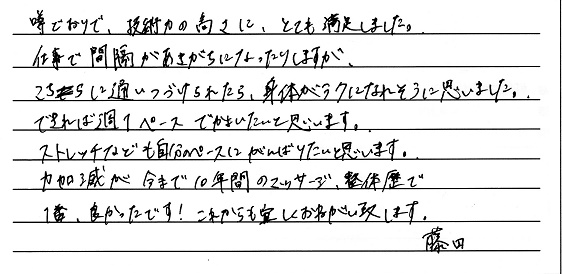 噂どおりで、技術力の高さに、とても満足しました。
仕事で間隔があきがちになったりしますが、
こちらに通いつづけられたら、身体がラクになれそうに思いました。
できれば週1ペースでかよいたいと思います。
ストレッチなども自分のペースにがんばりたいと思います。
力加減が今まで10年間のマッサージ、整体歴で
1番、良かったです！これからも宜しくおねがい致します。
藤田